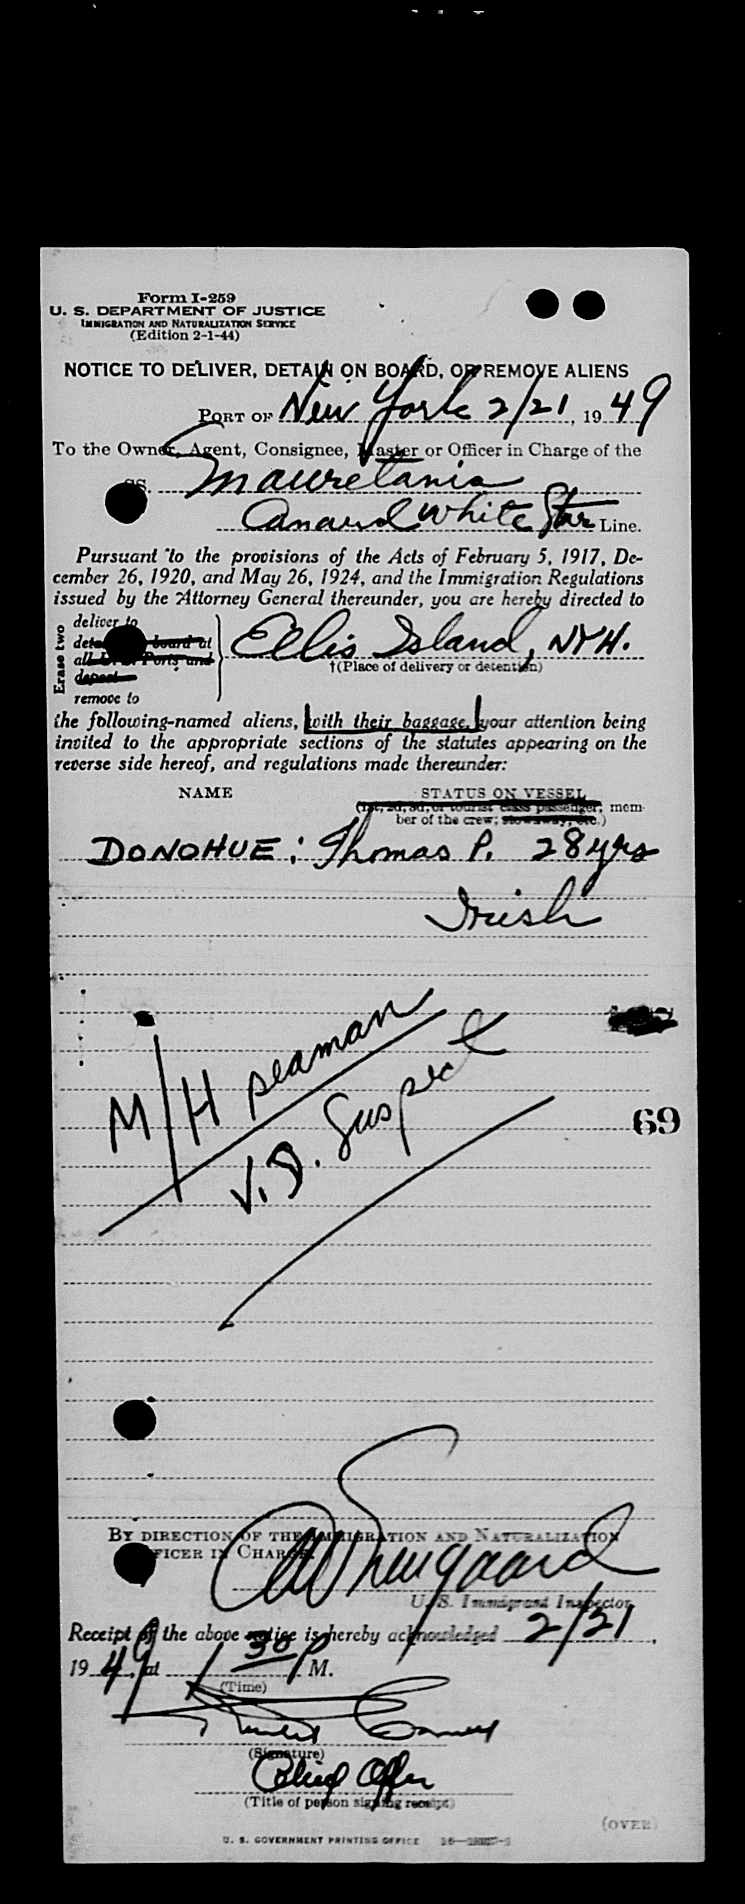 Form I-259
U. S. DEPARTMENT OF JUSTICE
IMMIGRATION AND NATURALIZATION SERVICE
(Edition 2-1-44)
NOTICE TO DELIVER, DETAIN ON BOARD, OR REMOVE ALIENS
PORT OF New York 2/21, 1949
To the Owner, Agent, Consignee, Master or Officer in Charge of the
SS. Mauretania
Cunard White Star Line.
Pursuant to the provisions of the Acts of February 5, 1917, De-
cember 26, 1920, and May 26, 1924, and the Immigration Regulations
issued by the Attorney General thereunder, you are hereby directed to
Erase two
deliver to
board at
Ports and
remove to
Ellis Island, NYH.
†(Place of delivery or detention)
the following-named aliens, with their baggage, your attention being
invited to the appropriate sections of the statutes appearing on the
reverse side hereof, and regulations made thereunder:
NAME STATUS ON VESSEL
(1st, 2d, 3d, or tourist class passenger, mem-
ber of the crew; stowaway, etc.)
DONOHUE; Thomas P. 28 yrs
Irish
M/H seaman
V.D. Suspect
69
BY DIRECTION OF THE IMMIGRATION AND NATURALIZATION
OFFICER IN CHARGE.
U. S. Immigrant Inspector
Receipt of the above notice is hereby acknowledged 2/21,
1949, at 1 30 P M.
(Time)
(Signature)
Chief Offer
(Title of person signing receipt)
(OVER)
U. S. GOVERNMENT PRINTING OFFICE